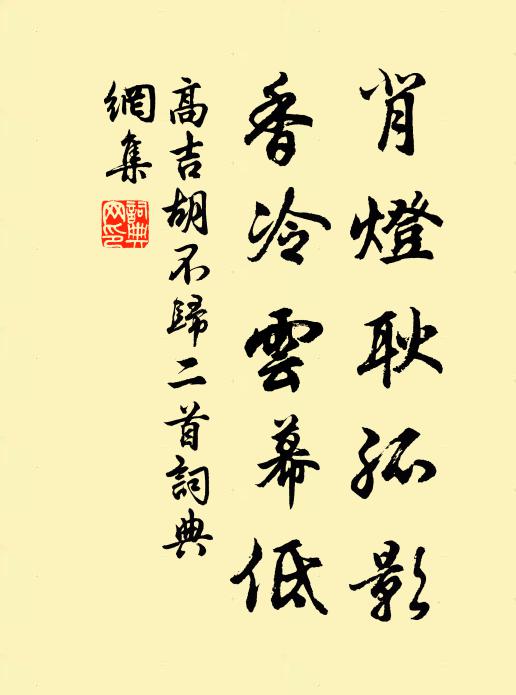 背燈耿孤影
香冷雲幕低
高吉胡不歸二首詞典
網集
詞典
网印